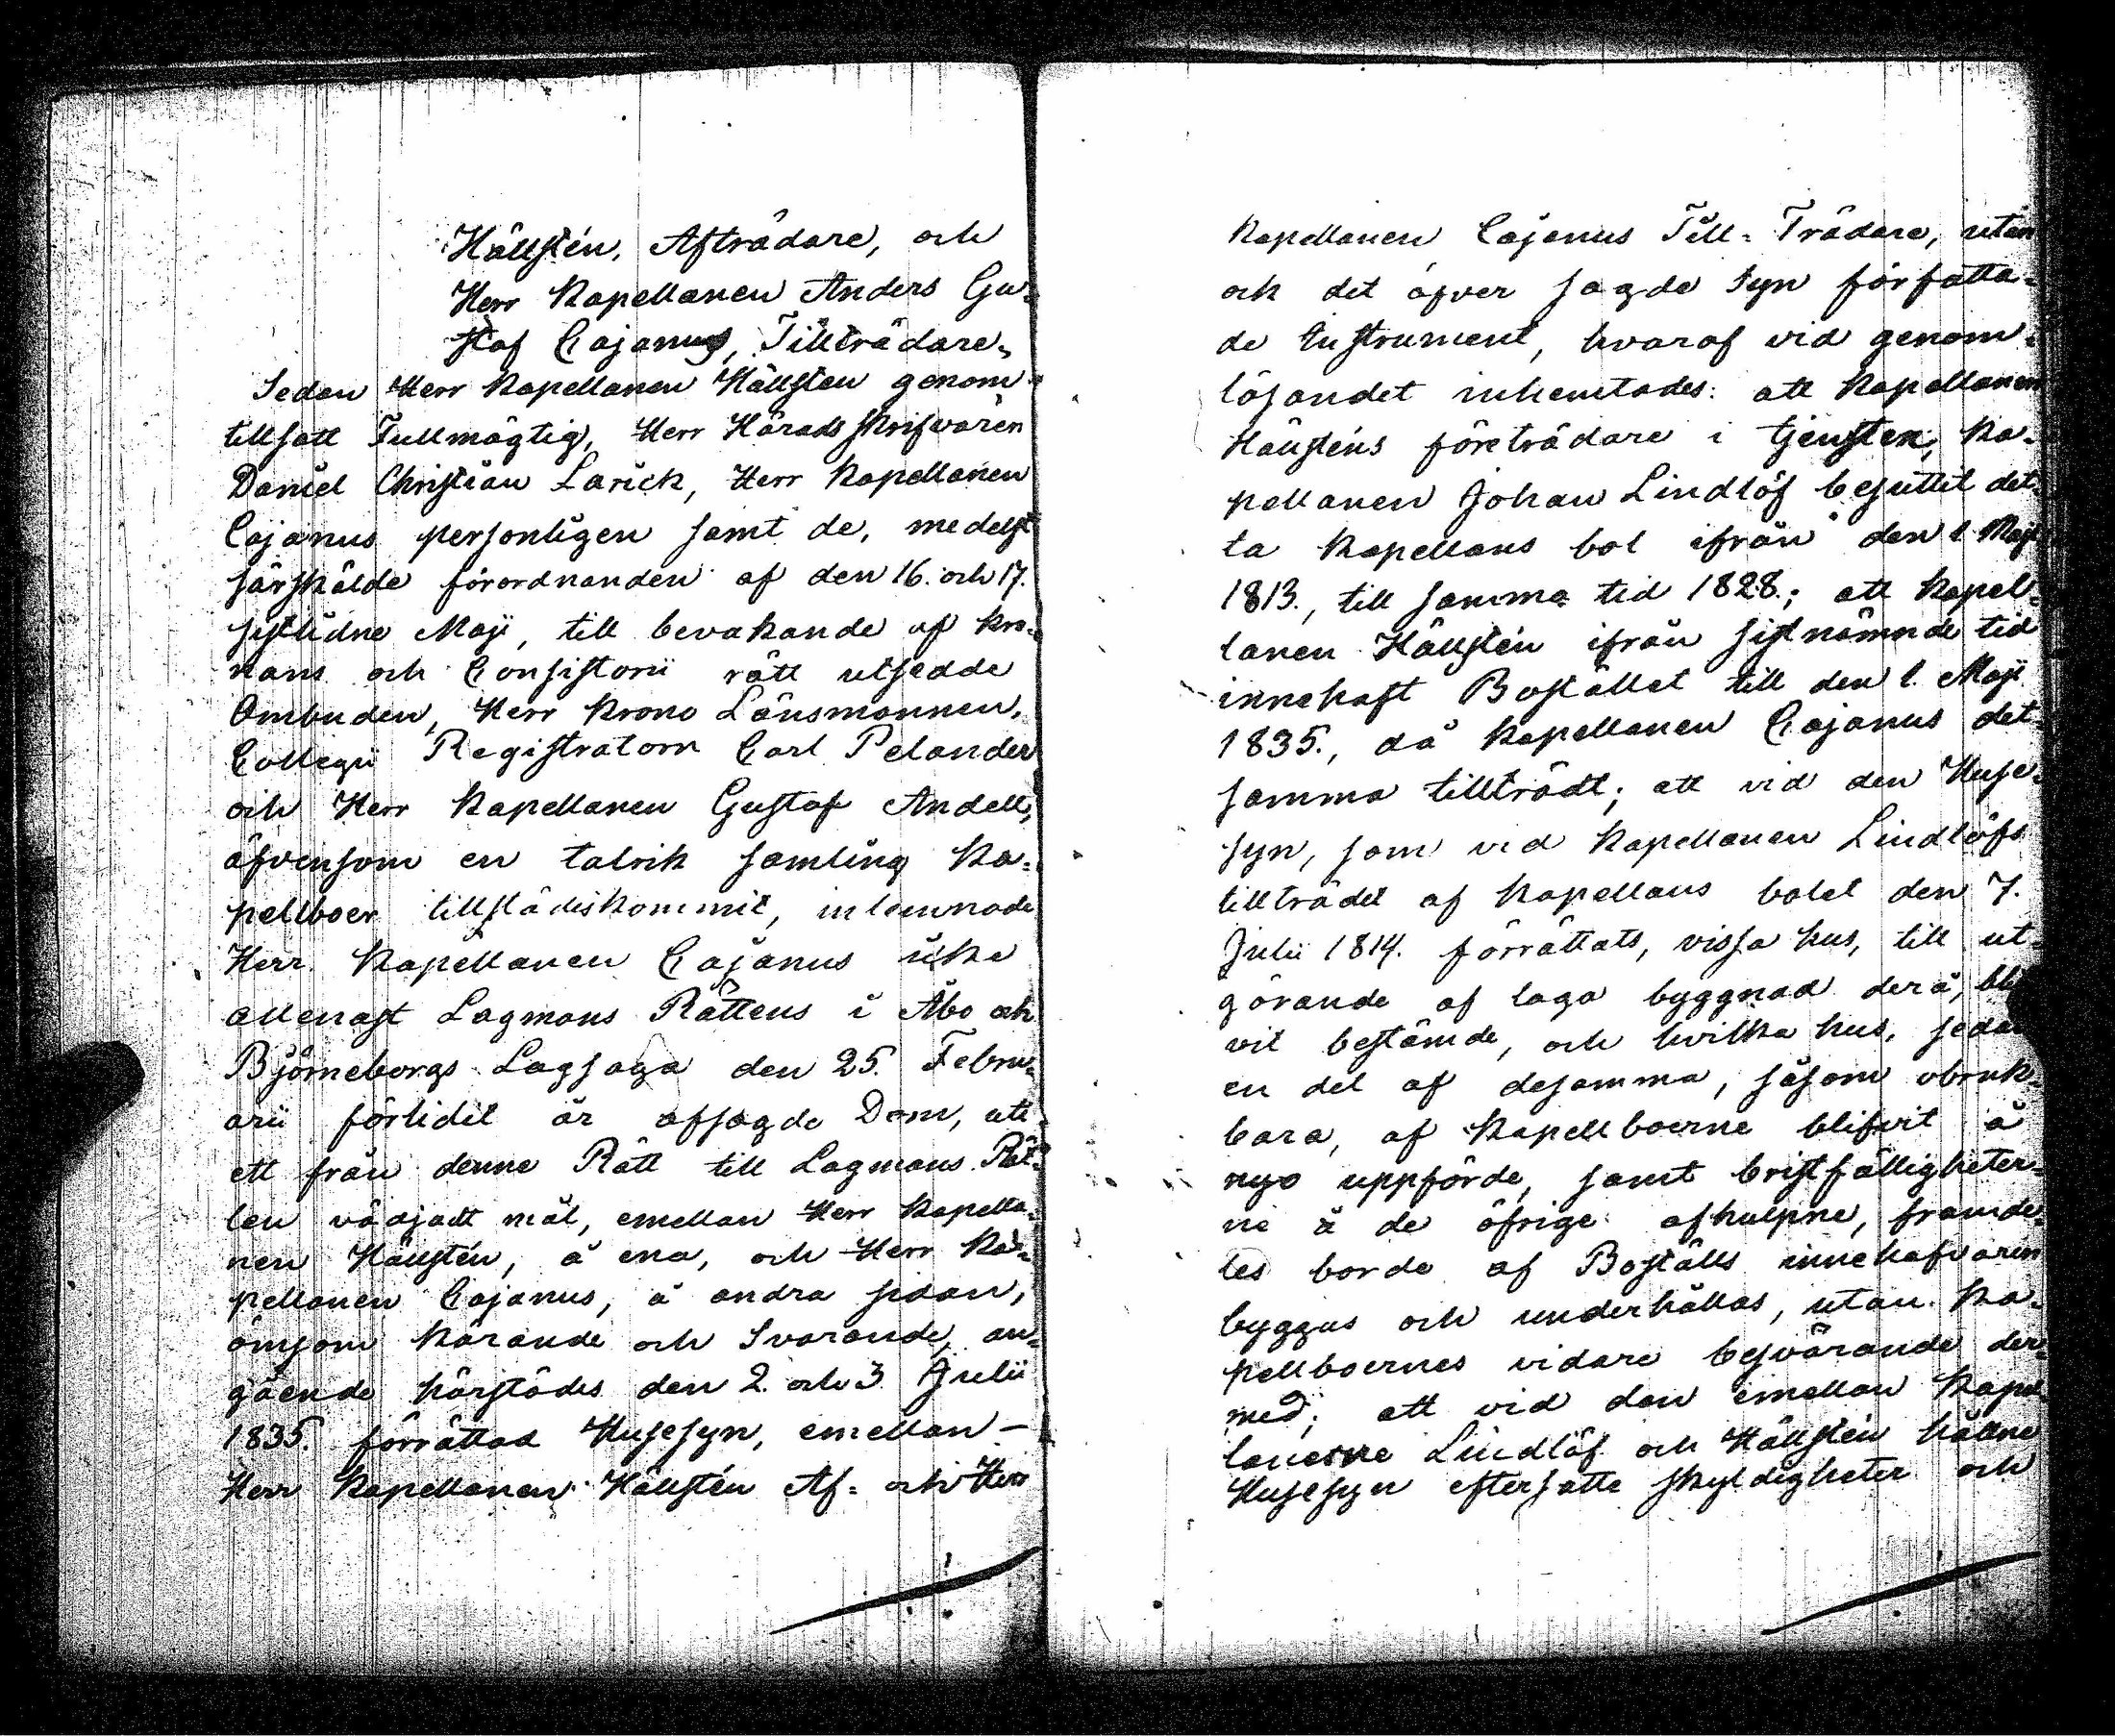 Hällstén, Afträdare, och
Herr Kapellanen Anders Gu-
staf Cajanus, Tillträdare.
Sedan Herr Kapellanen Hällsten genom
tillsatt Fullmägtig, Herr Häradsskrifvaren
Daniel Christian Larick, Herr Kapellanen
Cajanus personligen samt de, medelst
särskälde förordnanden af den 16. och 17.
sistlidne Maji, till bevakande af Kro-
nans och Consistorii rätt utsedde
Ombuden, Herr Krono Länsmannen,
Collegii Registratorn Carl Pelander
och Herr Kapellanen Gustaf Andell,
äfvensom en talrik samling Ka-
pellboer tillstädeskommit, inlemnade
Herr Kapellanen Cajanus icke
allenast Lagmans Rättens i Åbo och
Björneborgs Lagsaga den 25. Febru-
arii förlidit år afsagde Dom, uti
ett från denne Rätt till Lagmans Rät-
ten vädjadt mål, emellan Herr Kapella-
nen Hällstén, å ena, och Herr Ka-
pellanen Cajanus, å andra sidan,
ömsom Kärande och Svarande, an-
gående härstädes den 2. och 3 Julii
1835. förrättad Husesyn, emellan —
Herr Kapellanen Hällstén Af- och Herr
Kapellanen Cajanus Till-Trädare, utan
och det öfver sagde Syn författa-
de Instrument, hvaraf vid genom-
läsandet inhemtades: att Kapellanen
Hällsténs företrädare i tjensten, Ka-
pellanen Johan Lindlöf besuttit det-
ta Kapellans bol ifrån den 1 Maji
1813., till samma tid 1828.; att Kapel-
lanen Hällstén ifrån sistnämnde tid
innehaft Bostället till den 1. Maji
1835., då Kapellanen Cajanus det-
samma tillträdt; att vid den Huse-
syn, som vid Kapellanen Lindlöfs
tillträdet af Kapellans bolet den 7.
Julii 1814. förrättats, vissa hus, till ut-
görande af laga byggnad derå, bli
vit bestämde, och hvilka hus, sedan
en del af desamma, såsom obruk-
bara, af Kapellboerne blifvit å
nyo uppförde, samt bristfälligheter-
ne å de öfrige afhulpne, framde-
les borde af Boställs innehafvaren
byggas och underhållas, utan Ka-
pellboernes vidare besvärande der-
med; att vid den emellan Kapel-
lanerne Lindlöf och Hällstén hållne
Husesyn eftersatte skyldigheter och